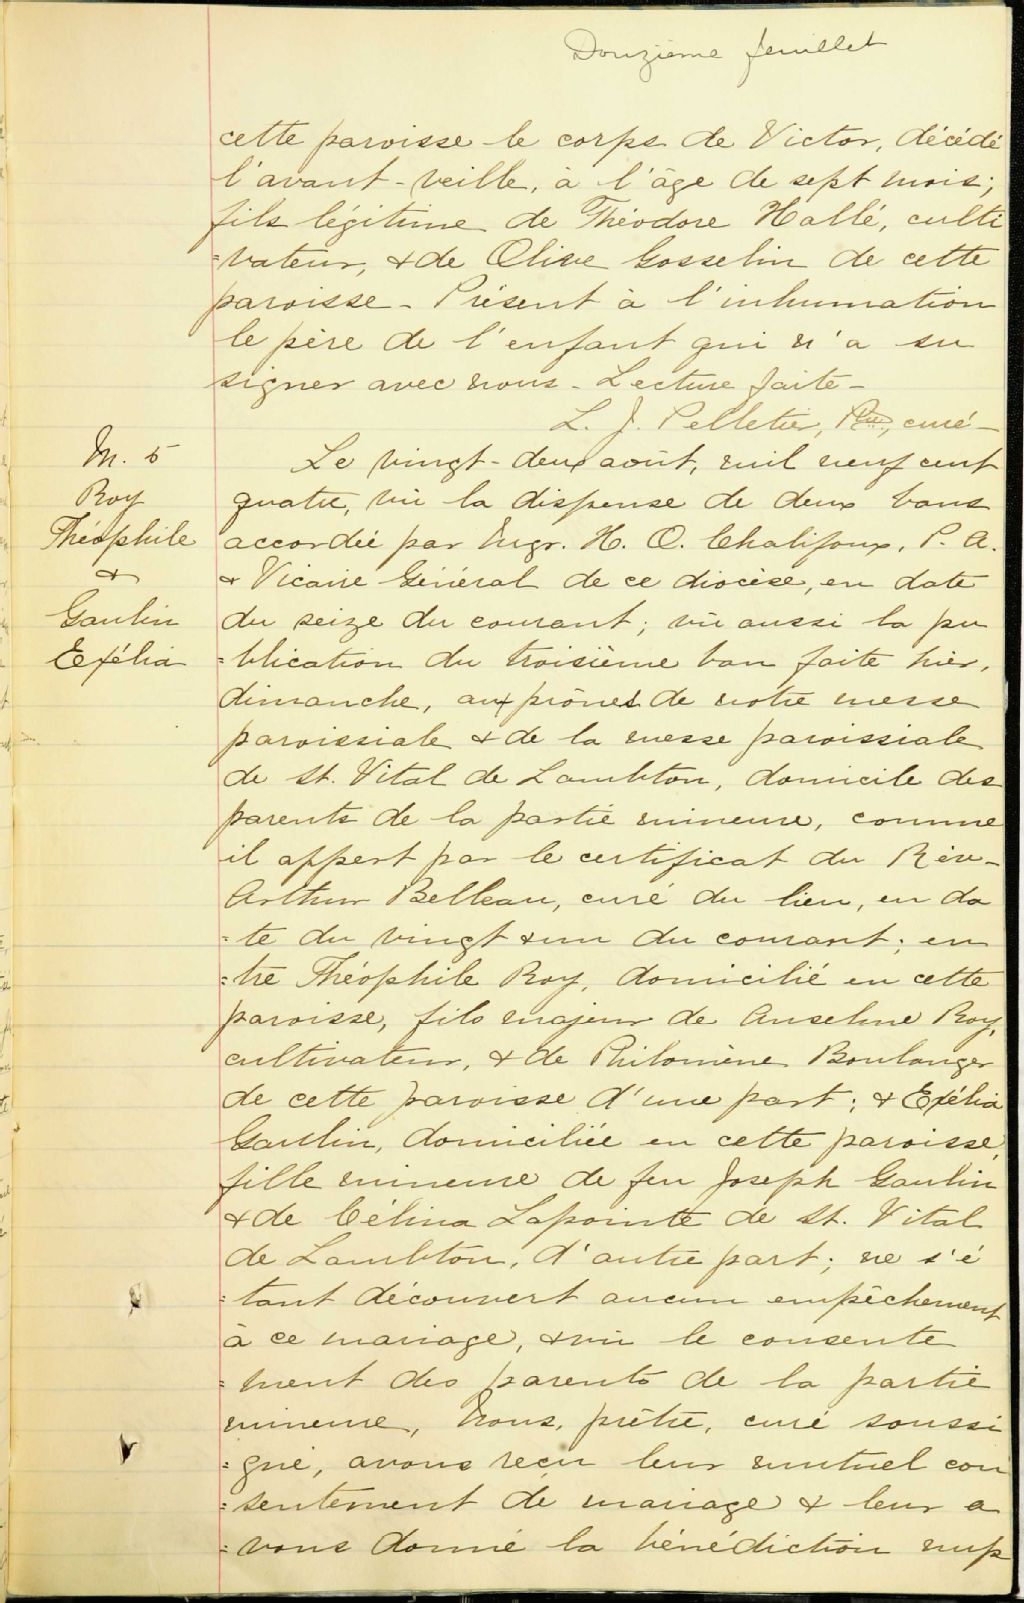 Douzième feuillet
cette paroisse le corps de Victor, décédé
l'avant-veille, à l'âge de sept mois;
fils légitime de Théodore Hallé, culti
=vateur, & de Olive Gosselin de cette
paroisse - Présent à l'inhumation
le père de l'enfant qui n'a su
signer avec nous - Lecture faite -
L. J. Pelletier, Ptre, curé -
M. 5
Roy
Théophile
&
Gaulin
Exélia
Le vingt-deux août, mil neuf cent
quatre, vu la dispense de deux bans
accordée par Mgr. H. O. Chalifoux, P. A.
& Vicaire Général de ce diocèse, en date
du seize du courant; vu aussi la pu
=blication du troisième ban faite hier,
dimanche, aux prônes de notre messe
paroissiale & de la messe paroissiale
de St. Vital de Lambton, domicile des
parents de la partie mineure, comme
il appert par le certificat du Rév-
Arthur Belleau, curé du lieu, en da
=te du vingt & un du courant; en
=tre Théophile Roy, domicilié en cette
paroisse, fils majeur de Anselme Roy,
cultivateur, & de Philomène Boulanger
de cette paroisse d'une part; & Exélia
Gaulin, domiciliée en cette paroisse,
fille mineure de feu Joseph Gaulin
& de Célina Lapointe de St. Vital
de Lambton, d'autre part; ne s'é
=tant découvert aucun empêchement
à ce mariage, & vu le consente
=ment des parents de la partie
mineure, Nous, prêtre, curé soussi
=gné, avons reçu leur mutuel con
=sentement de mariage & leur a
=vons donné la bénédiction nup